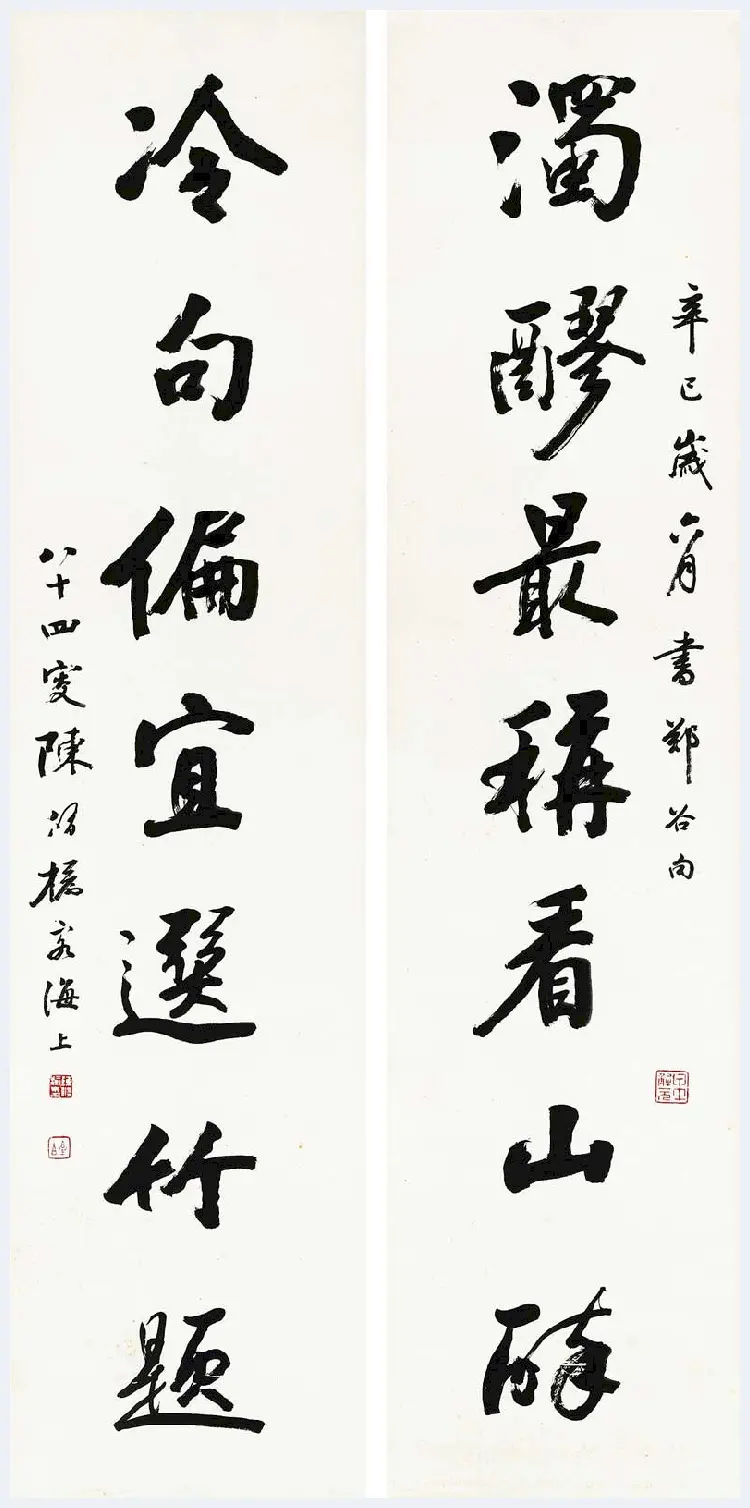 辛巳歲六月書鄭谷句
濁醪最稱看山醉
冷句偏宜選竹題
八十四叟陳 客海上